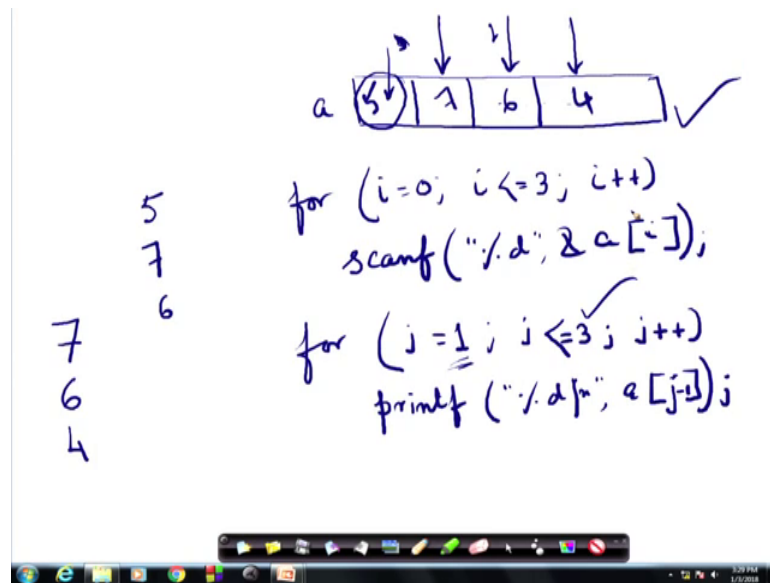 a 5 7 6 4
5 for (i=0; i<=3; i++)
7 scanf ("%d", & a[i]);
6
7 for (j=1; j<=3; j++)
6 printf ("%d\n", a[j-1]);
4
3:29 PM
1/3/2018